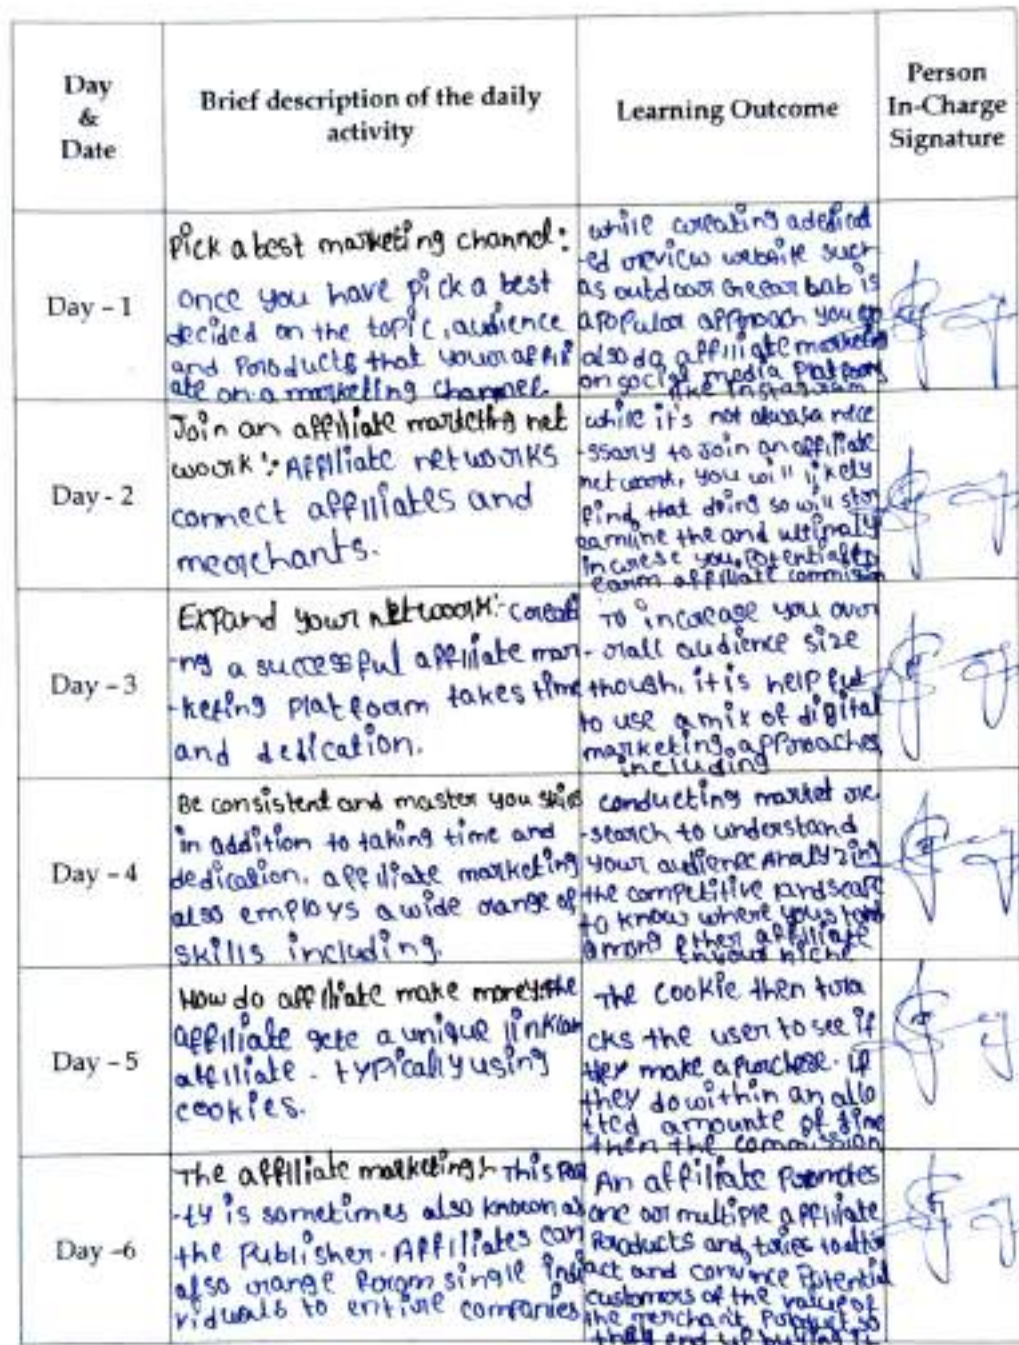 Day
&
Date
Brief description of the daily
activity
Learning Outcome
Person
In-Charge
Signature
Day - 1
Pick a best marketing channel:
once you have pick a best
decided on the topic, audience
and Products that your affili
ate on a marketing channel.
while creating a dedicat
-ed review website such
as outdoor Gear bab is
a popular approach you
also do affiliate marketing
on social media Platform
like Instagram
Day - 2
Join an affiliate marketing net
work :- Affiliate networks
connect affiliates and
merchants.
while it's not always a nece
-ssary to Join an affiliate
network, you will likely
find, that doing so will
the and ultimately
increse you, Potential to
earn affiliate commision
Day - 3
Expand your network:- creati
-ng a successful affiliate mar
-keting platform takes time
and dedication.
To increase you over
-rall audience size
though, it is help ful
to use a mix of digital
marketing approaches
including
Day - 4
Be consistent and master you skills
in addition to taking time and
dedication, affiliate marketing
also employs a wide range of
skills including.
conducting market re
-search to understand
your audience Analyzing
the competitive landscape
to know where you stand
among other affiliate
in your niche
Day - 5
How do affiliate make money:the
affiliate gets a unique link
affiliate - typically using
cookies.
The cookie then tra
cks the user to see if
they make a purchase. if
they do within an allo
tted amounte of time
then the commission
Day -6
The affiliate marketing:- This Par
-ty is sometimes also known as
the Publisher. Affiliates can
also range from single indi
viduals to entire companies
An affiliate Promotes
one or multiple affiliate
Products and, tries to attr
act and convince Potential
customers of the value of
the merchant Product so
they end up buying it